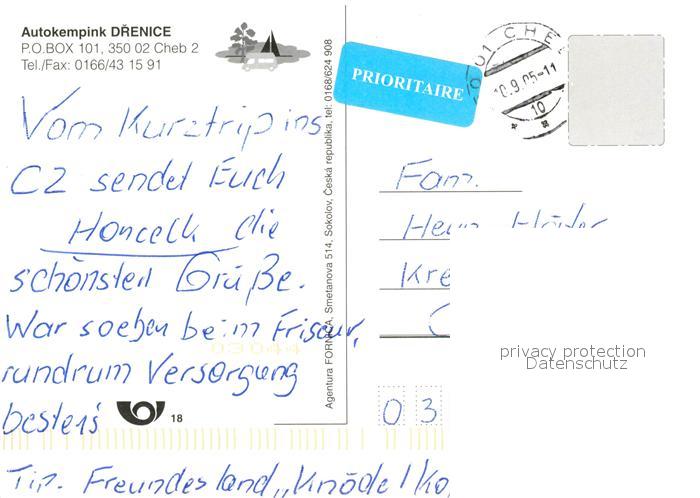 Autokempink DŘENICE
P.O.BOX 101, 350 02 Cheb 2
Tel./Fax: 0166/43 15 91
PRIORITAIRE
01 CHE
10.9.05-11
10
Vom Kurztrip ins
CZ sendet Euch
die
schönsten Grüße.
War soeben beim Friseur,
rundrum Versorgung
bestens
18
Tip. Freundesland „Knödel
Agentura FORNICA, Smetanova 514, Sokolov, Česká republika, tel: 0168/624 908
Fam.
Kre
03
03044
privacy protection
Datenschutz